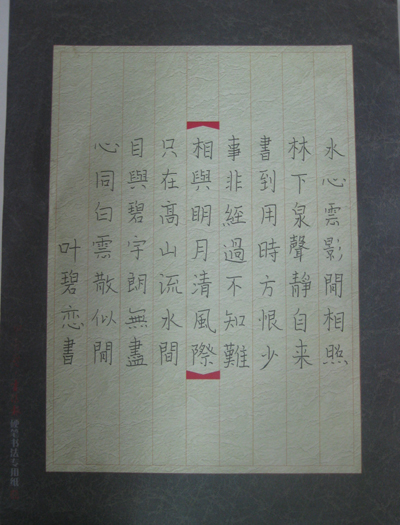 水心雲影閒相照
林下泉聲靜自来
書到用時方恨少
事非經過不知難
相與明月清風際
只在高山流水間
目與碧宇朗無盡
心同白雲散似閒
叶碧恋書
硬笔书法专用纸